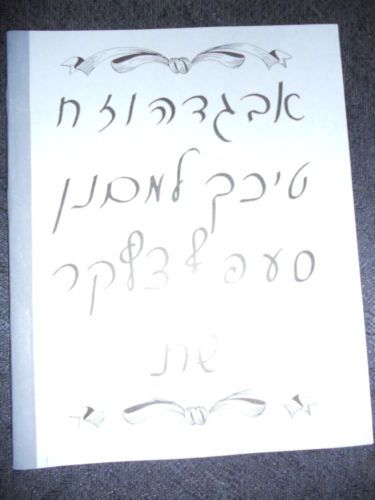 אבגדהוזח
טיכך למםנן
סעפף צץקר
שת